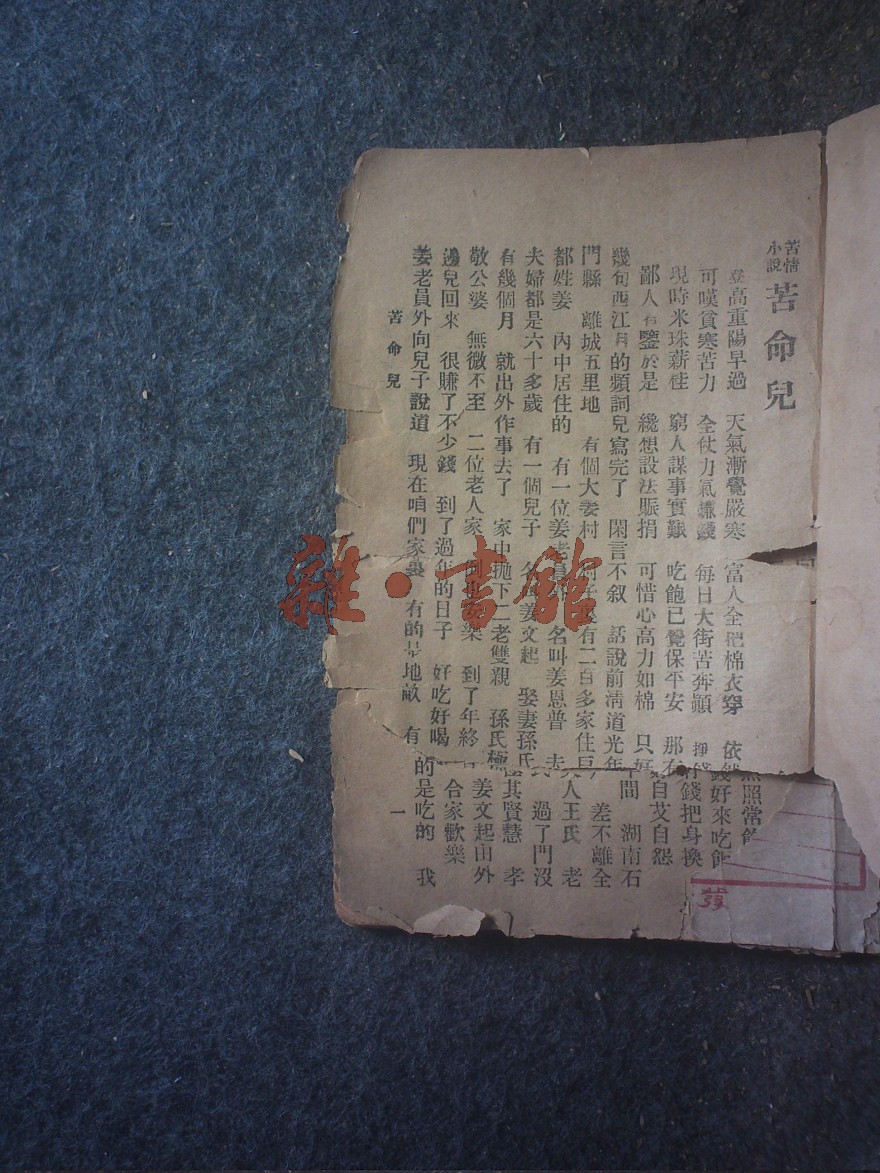 苦情小說 苦命兒
登高重陽早過 天氣漸覺嚴寒 富人全把棉衣穿 依 照常
可嘆貧寒苦力 全仗力氣賺錢 每日大街苦奔顛 掙 錢好來吃飯
現時米珠薪桂 窮人謀事實艱 吃飽已覺保平安 那有 錢把身換
鄙人有鑒於是 纔想設法賑捐 可惜心高力如棉 只好自艾自怨
幾句西江月的頰詞兒寫完了 閑言不叙 話說前清道光年間 湖南石
門縣 離城五里地 有個大姜村 有二百多家住戶 差不離全
都姓姜 內中居住的 有一位姜老 名叫姜恩普 夫人王氏 老
夫婦都是六十多歲 有一個兒子 名 姜文起 娶妻孫氏 過了門沒
有幾個月 就出外作事去了 家中拋下二老雙親 孫氏極其賢慧 孝
敬公婆 無微不至 二位老人家 樂 到了年終 姜文起由外
邊兒回來 很賺了不少錢 到了過年的日子 好吃好喝 合家歡樂
姜老員外向兒子說道 現在咱們家裏 有的是地畝 有的是吃的 我
苦命兒
一
雜·書館